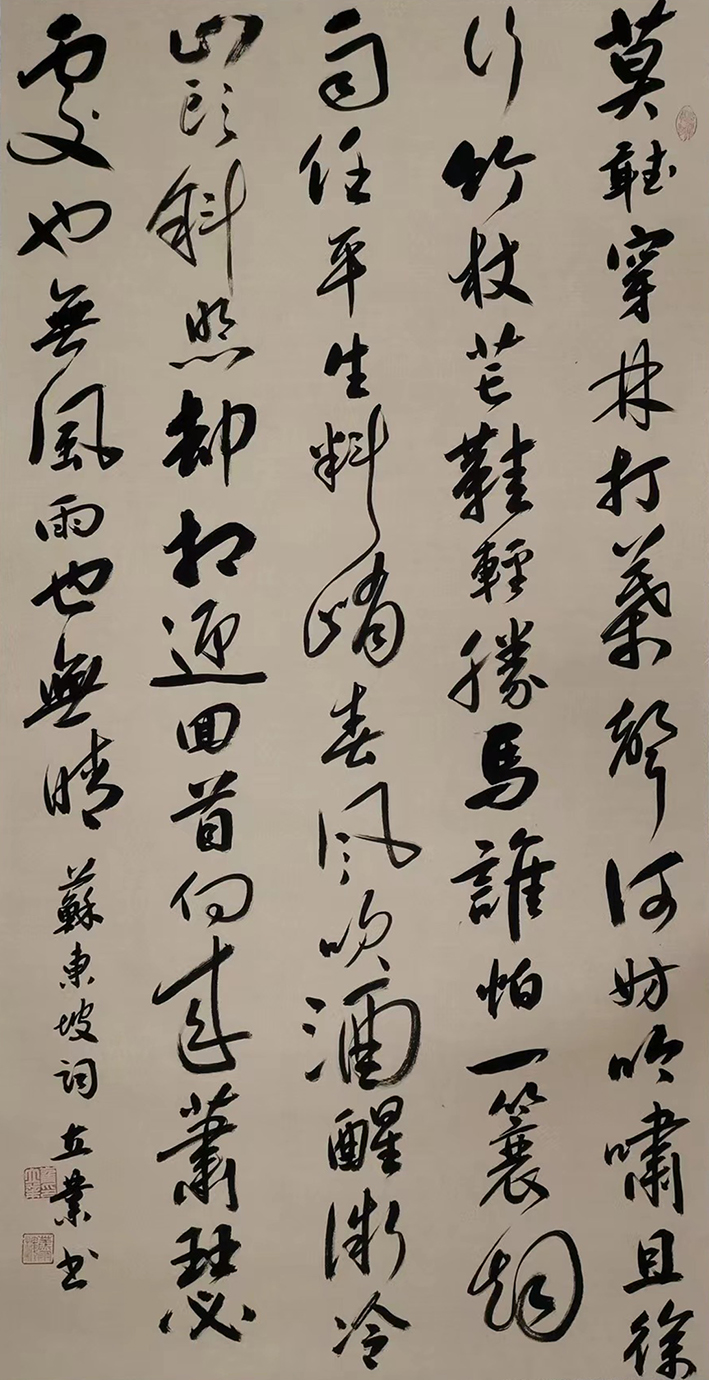 莫聽穿林打葉聲何妨吟嘯且徐
行竹杖芒鞋輕勝馬誰怕一簑烟
雨任平生料峭春風吹酒醒微冷
山頭斜照却相迎回首向來蕭瑟
處也無風雨也無晴
蘇東坡詞立業书